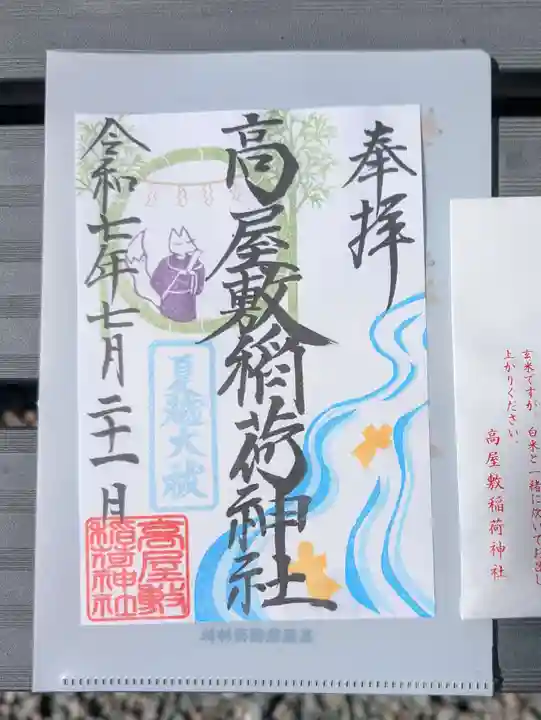 奉拝
高屋敷稲荷神社
令和七年七月二十一日
夏越大祓
高屋敷
稲荷神社
玄米ですが、白米と一緒に炊いてお召し
上がりください。
高屋敷稲荷神社